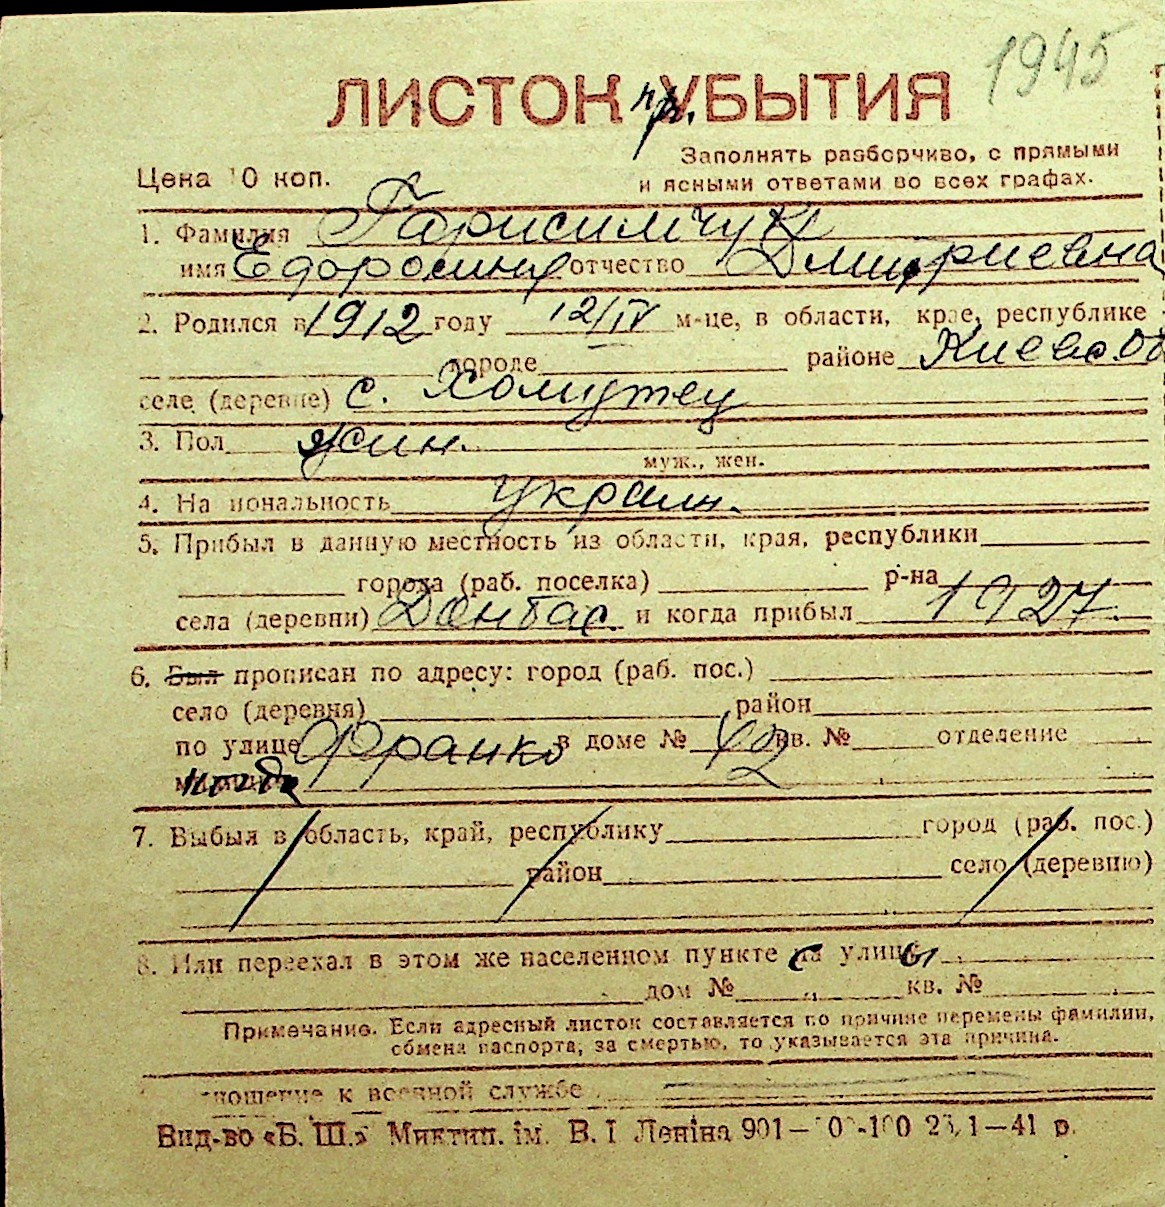 1945
ЛИСТОК пр. УБЫТИЯ
Заполнять разборчиво, с прямыми
Цена 10 коп. и ясными ответами во всех графах.
1. Фамилия Гарисимчук
имя Едоросиния отчество Дмитриевна
2. Родился в 1912 году 12/IV м-це, в области, крае, республике
городе районе Киевс. об
селе (деревне) с. Хомутец
3. Пол жин.
муж., жен.
4. Национальность украин.
5. Прибыл в данную местность из области, края, республики
города (раб. поселка) р-на
села (деревни) Донбас. и когда прибыл 1927.
6. Был прописан по адресу: город (раб. пос.)
село (деревня) район
по улице Франко в доме № кв. № отделение
2
7. Выбыл в область, край, республику город (раб. пос.)
район село (деревню)
8. Или переехал в этом же населенном пункте с улицы
дом № кв. №
Примечание. Если адресный листок составляется по причине перемены фамилии,
обмена паспорта, за смертью, то указывается эта причина.
отношение к военной службе
Вид-во «Б. Ш.» Миктип. ім. В. І Леніна 901— 41 р.